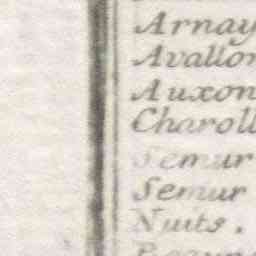 Arnay
Avallon
Auxon
Charoll
Semur
Semur
Nuits.